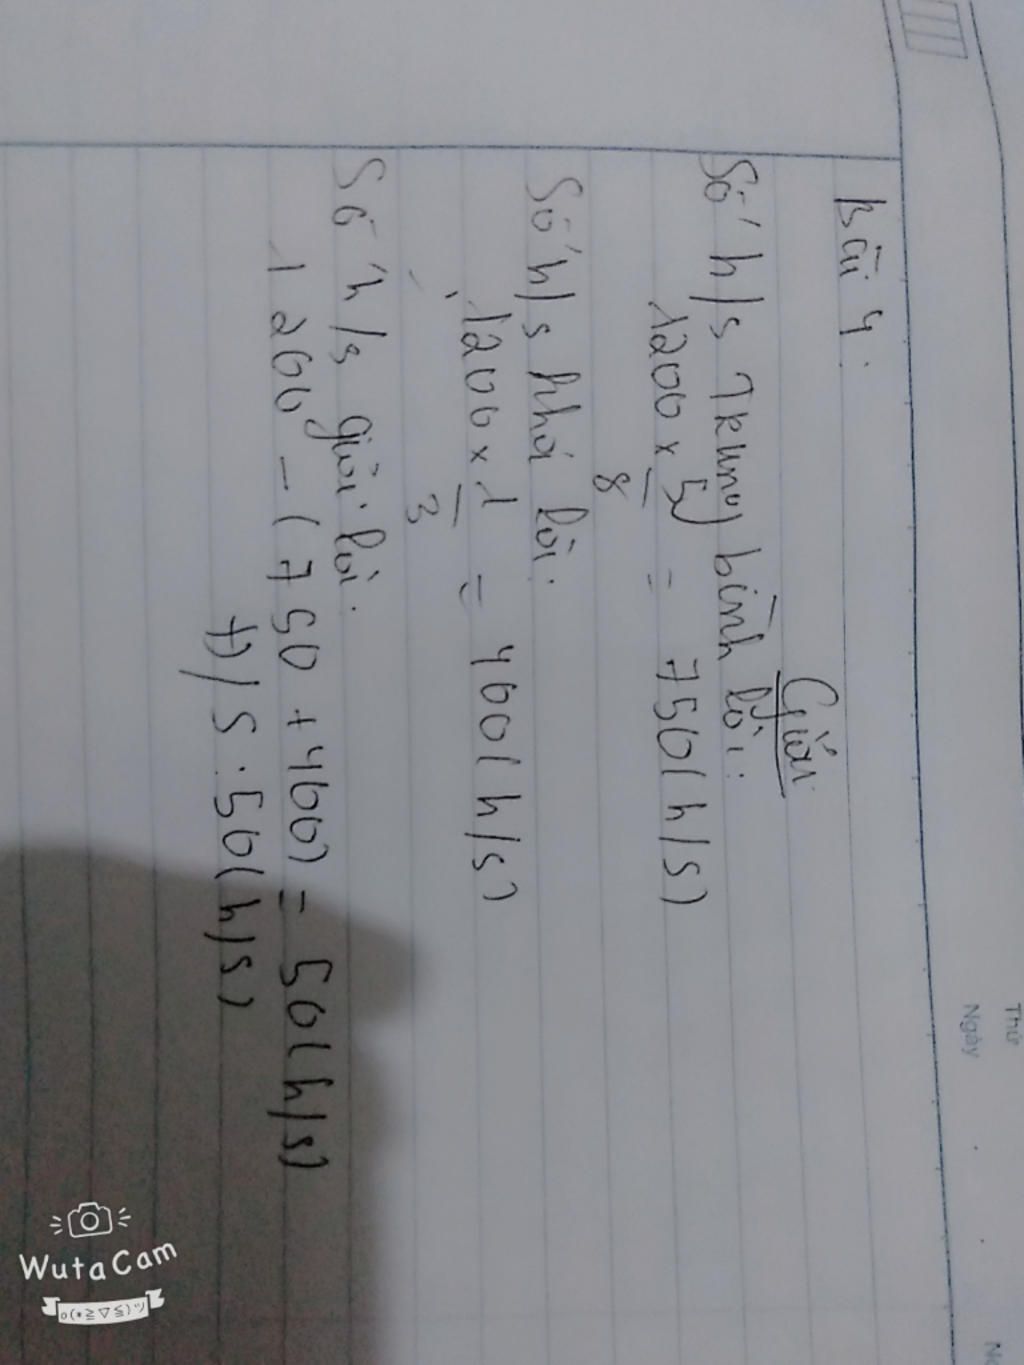 Thứ
Ngày
Bài 4.
Giải
Số h/s Trung bình là:
1200 x 5/8 = 750 (h/s)
Số h/s khá là:
1200 x 1/3 = 400 (h/s)
Số h/s giỏi là:
1200 - (750 + 400) = 50 (h/s)
Đ/S: 50 (h/s)
WutaCam
o(*≧▽≦)ツ